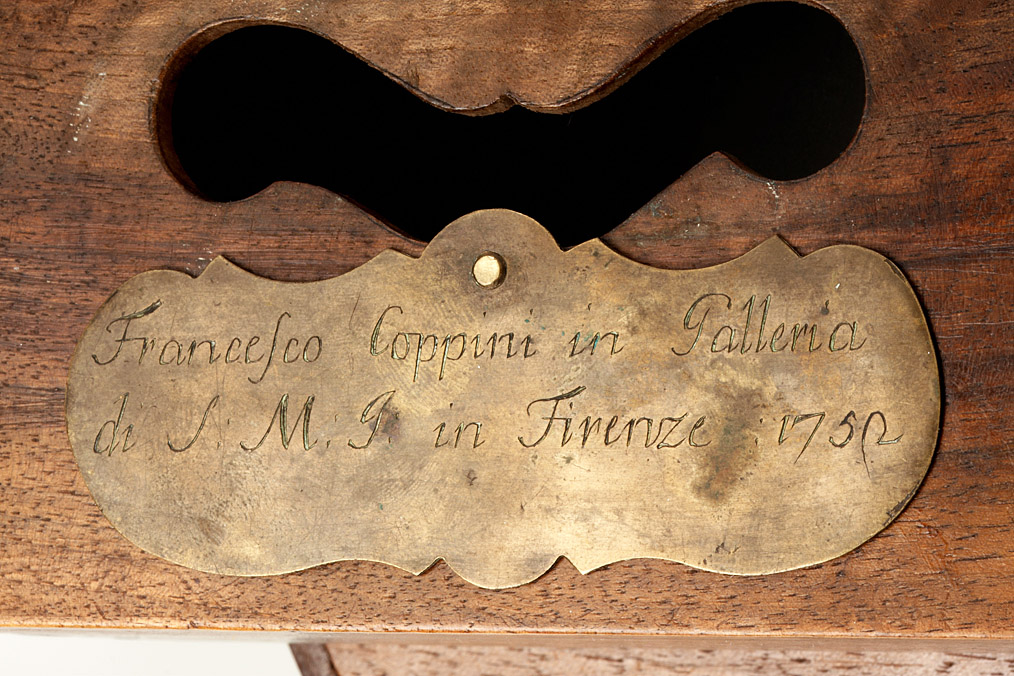 Franceſco Coppini in Galleria
di S: M: I. in Firenze : 1752